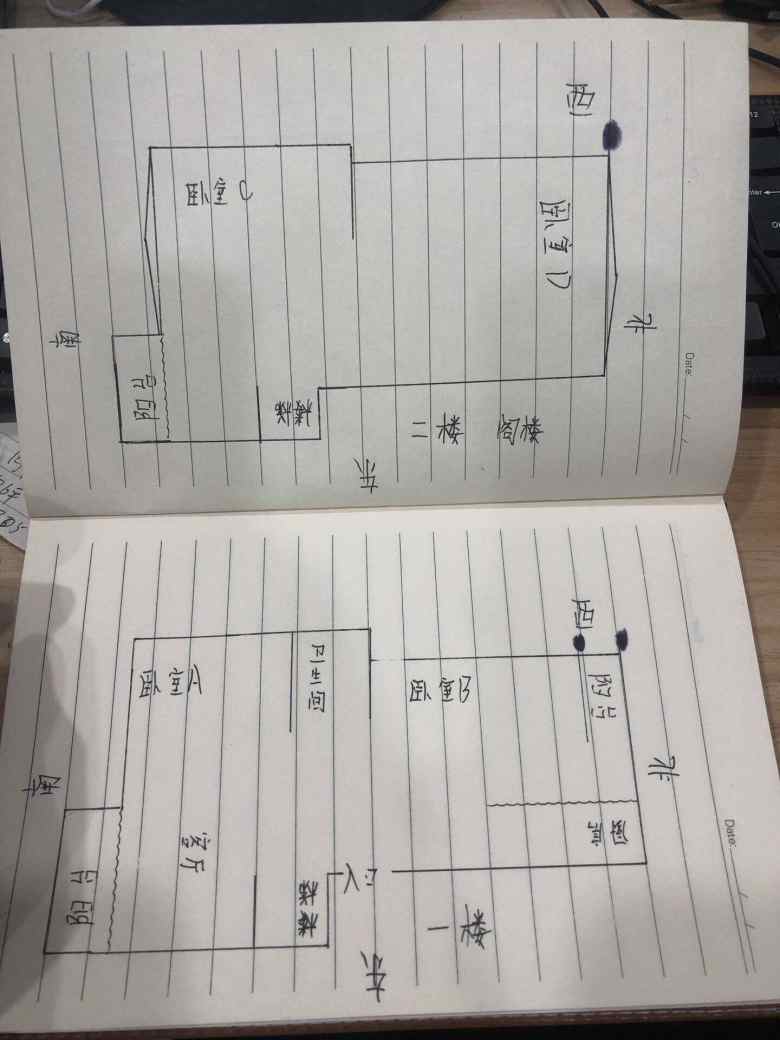 西
卧室C
卧室D
南
北
阳台
楼梯
二楼 阁楼
东
Date:
西
卧室A
卫生间
卧室B
阳台
南
北
客厅
厨房
阳台
楼梯
入口
一楼
东
Date: